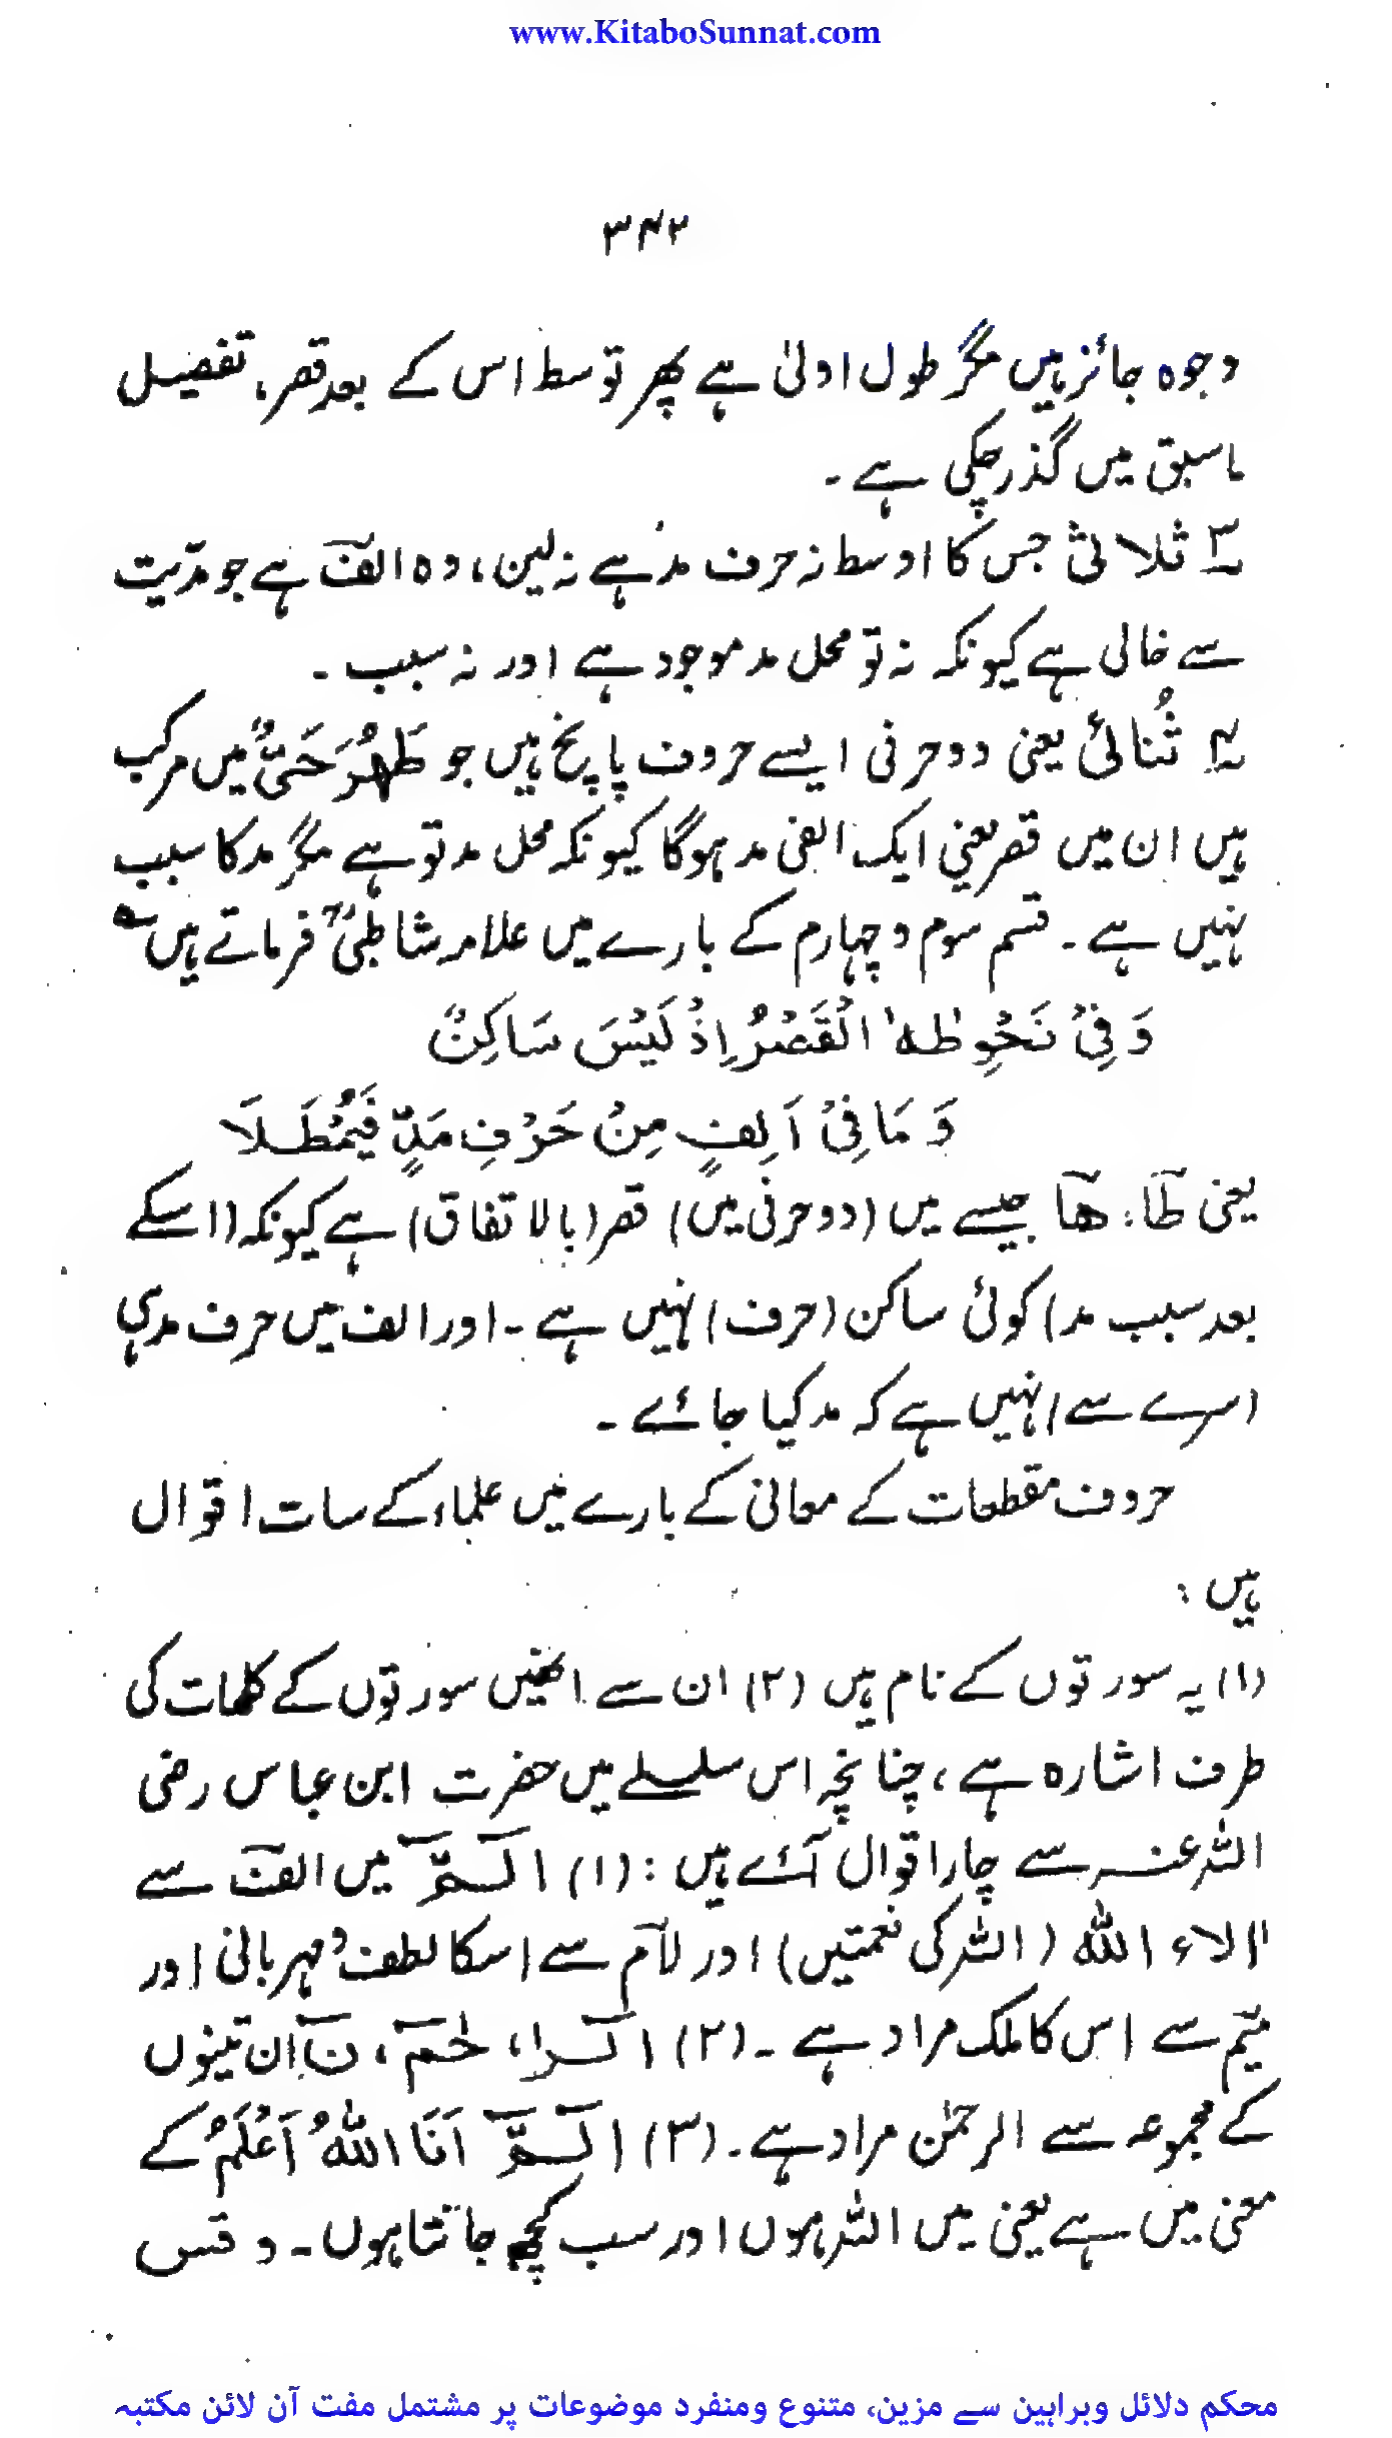 www.KitaboSunnat.com
۳۴۲
وجوہ جائز ہیں مگر طول اولیٰ ہے پھر توسط اس کے بعد قصر، تفصیل
ماسبق میں گذر چکی ہے ۔
۳ ثلاثی جس کا اوسط نہ حرف مد ہے نہ لین، وہ الفٓ ہے جو مدّیت
سے خالی ہے کیونکہ نہ تو محل مد موجود ہے اور نہ سبب ۔
۴ ثُنائی یعنی دو حرفی ایسے حروف پانچ ہیں جو طَهُرَ حَیٌّ میں مرکب
ہیں ان میں قصر یعنی ایک الفی مد ہوگا کیونکہ محل مد تو ہے مگر مد کا سبب
نہیں ہے ۔ قسم سوم و چہارم کے بارے میں علامہ شاطبیؒ فرماتے ہیں ؎
وَفِیْ نَحْوِ طٰهٰ الْقَصْرُ اِذْ لَیْسَ سَاکِنٌ
وَمَا فِیْ اَلِفٍ مِنْ حَرْفِ مَدٍّ فَیُمْطَلَا
یعنی طآ، هآ جیسے میں (دو حرفی میں) قصر (بالاتفاق) ہے کیونکہ (اسکے
بعد سبب مد) کوئی ساکن (حرف) نہیں ہے ۔ اور الف میں حرف مد ہی
(سرے سے) نہیں ہے کہ مد کیا جائے ۔
حروف مقطعات کے معانی کے بارے میں علماء کے سات اقوال
ہیں :
(۱) یہ سورتوں کے نام ہیں (۲) ان سے انھیں سورتوں کے کلمات کی
طرف اشارہ ہے، چنانچہ اس سلسلے میں حضرت ابن عباس رضی
اللہ عنہ سے چار اقوال آئے ہیں : (۱) الٓمّٓ میں الفٓ سے
اٰلاء اللّٰه (اللہ کی نعمتیں) اور لآم سے اسکا لطف و مہربانی اور
میٓم سے اس کا ملک مراد ہے ۔ (۲) الٓرا، حٰمٓ، نٓ ان تینوں
کے مجموعہ سے الرحمٰن مراد ہے ۔ (۳) الٓمّٓ اَنَا اللّٰهُ اَعْلَمُ کے
معنی میں ہے یعنی میں اللہ ہوں اور سب کچھ جانتا ہوں ۔ وقس
محکم دلائل وبراہین سے مزین، متنوع ومنفرد موضوعات پر مشتمل مفت آن لائن مکتبہ